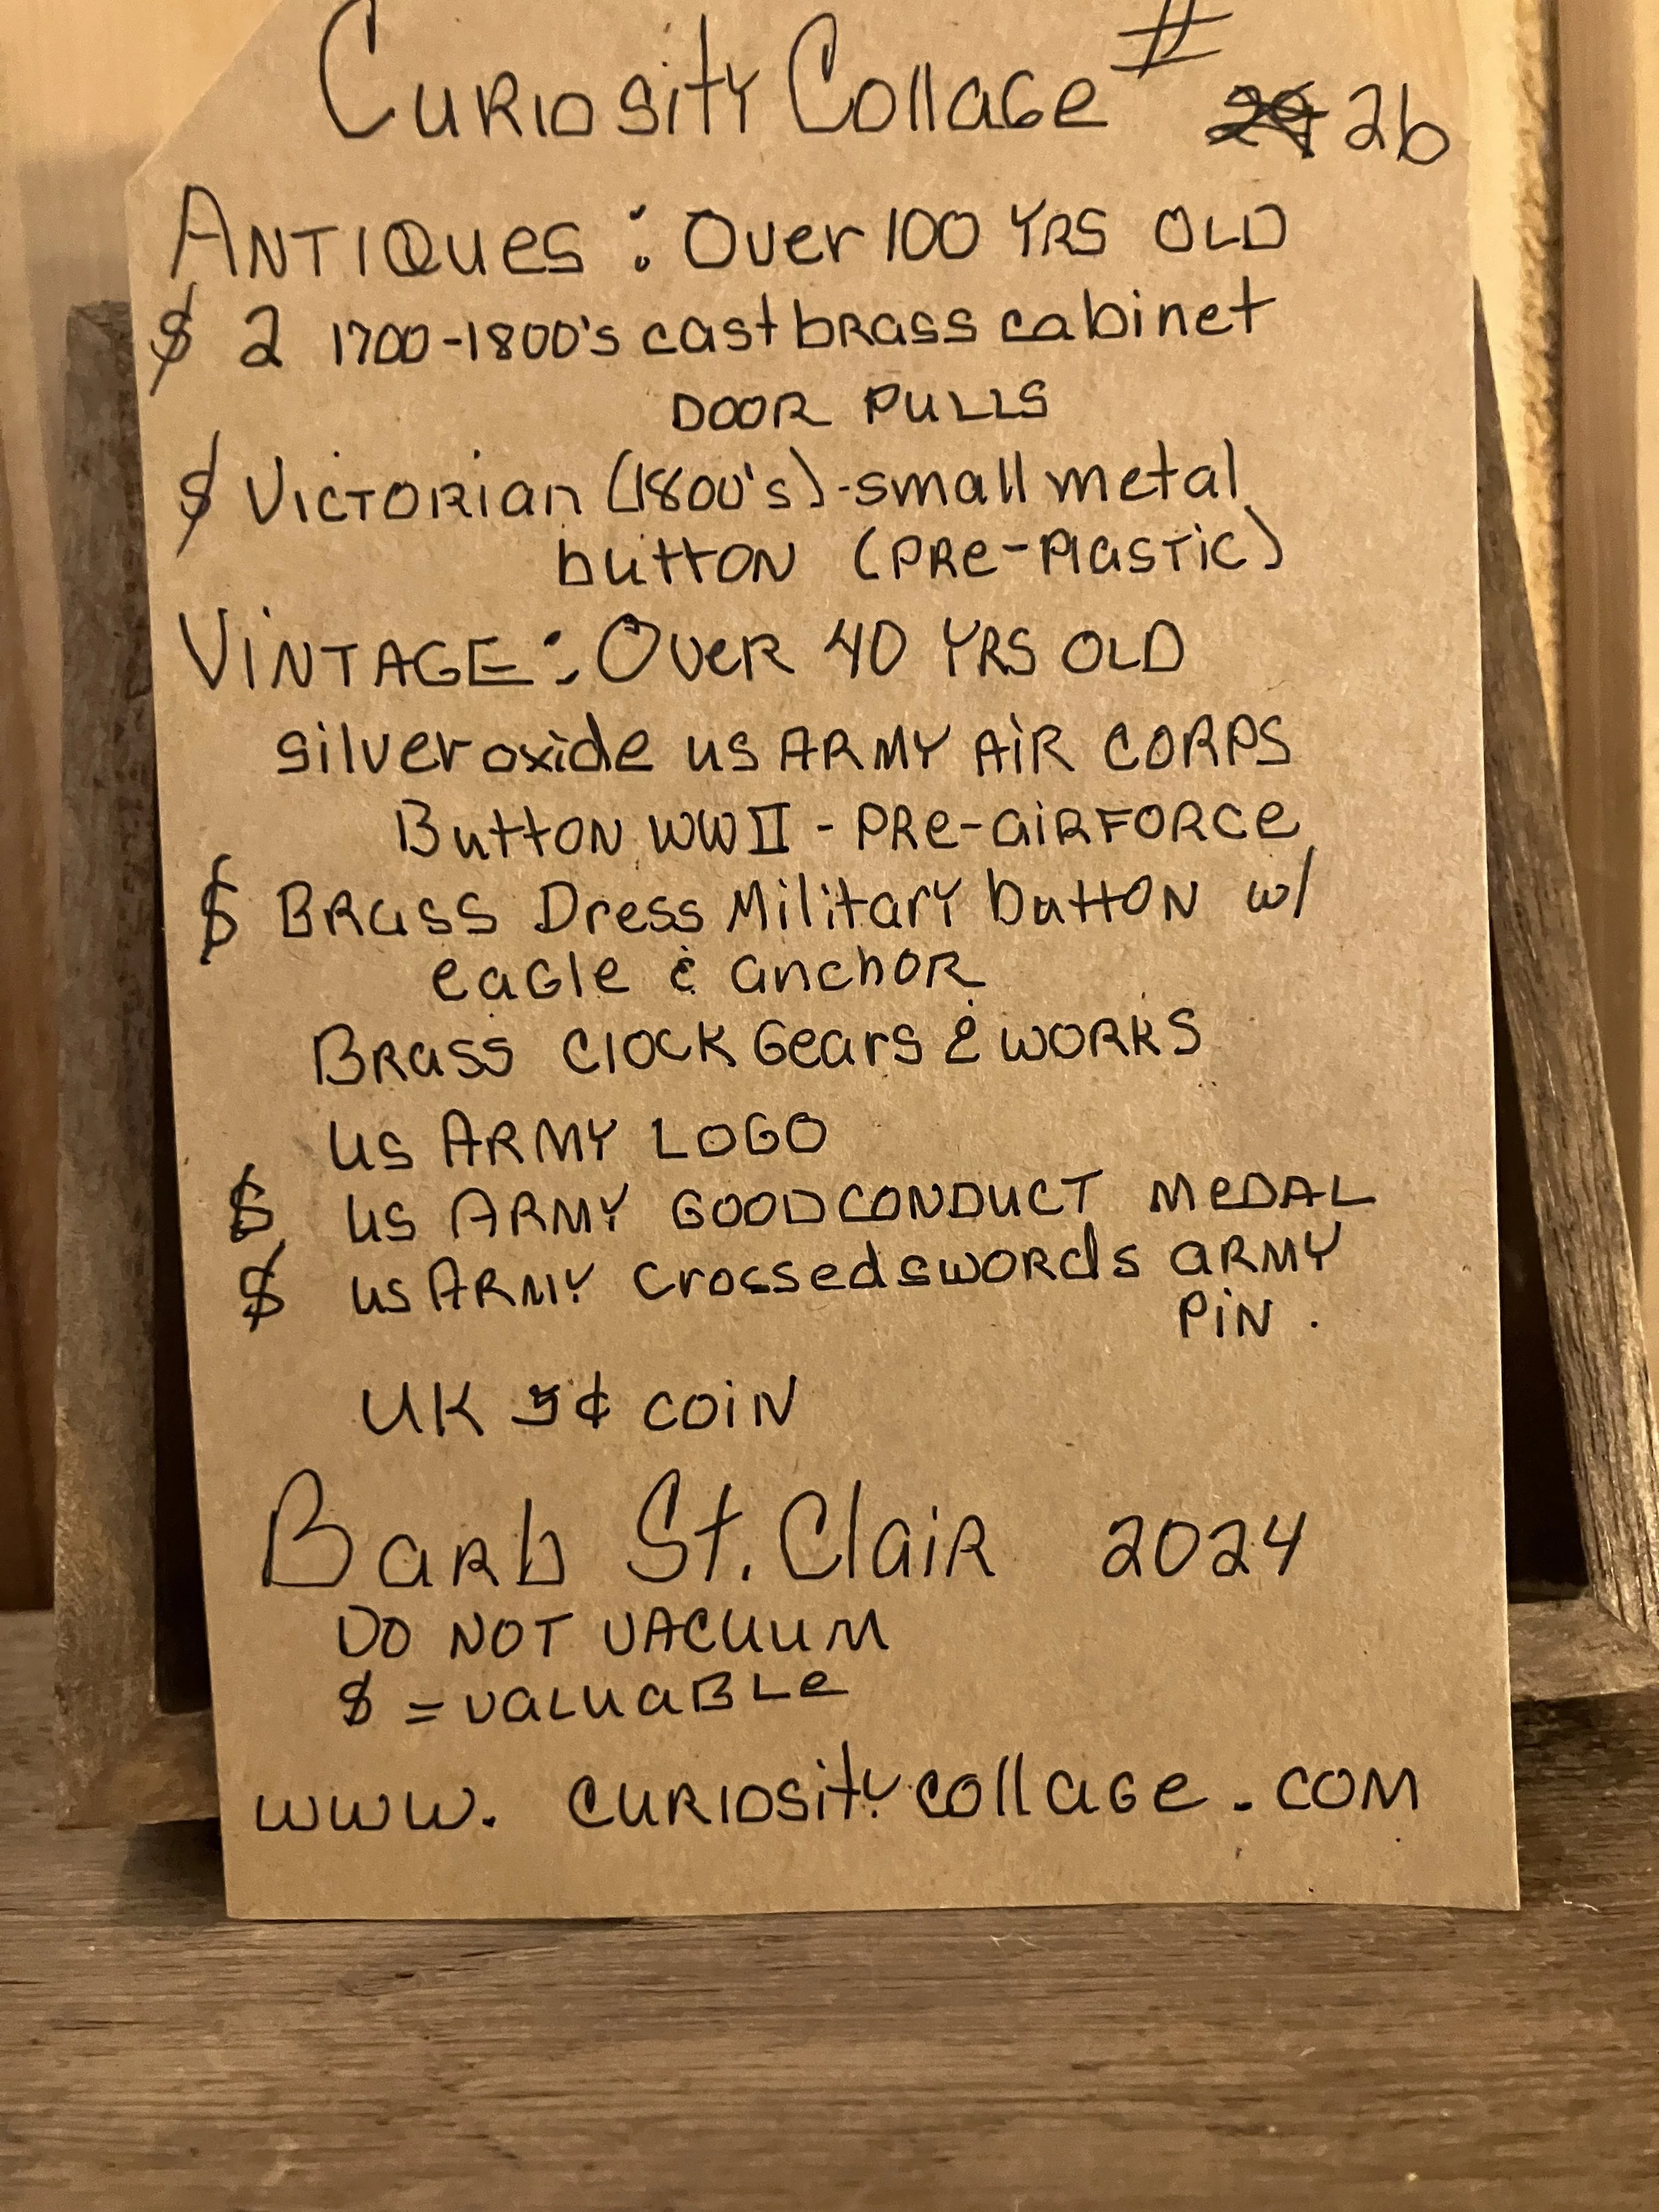 Curiosity Collage # 26
Antiques: Over 100 yrs old
$ 2 1700-1800's cast brass cabinet
door pulls
$ Victorian (1800's)-small metal
button (pre-plastic)
Vintage: Over 40 yrs old
silver oxide US Army Air Corps
Button WWII - pre-airforce
$ Brass Dress Military button w/
eagle & anchor
Brass clock Gears & works
US Army Logo
$ US Army Good Conduct Medal
$ US Army crossed swords army
pin.
UK 5¢ coin
Barb St. Clair 2024
Do not vacuum
$ = valuable
www.curiositycollage.com